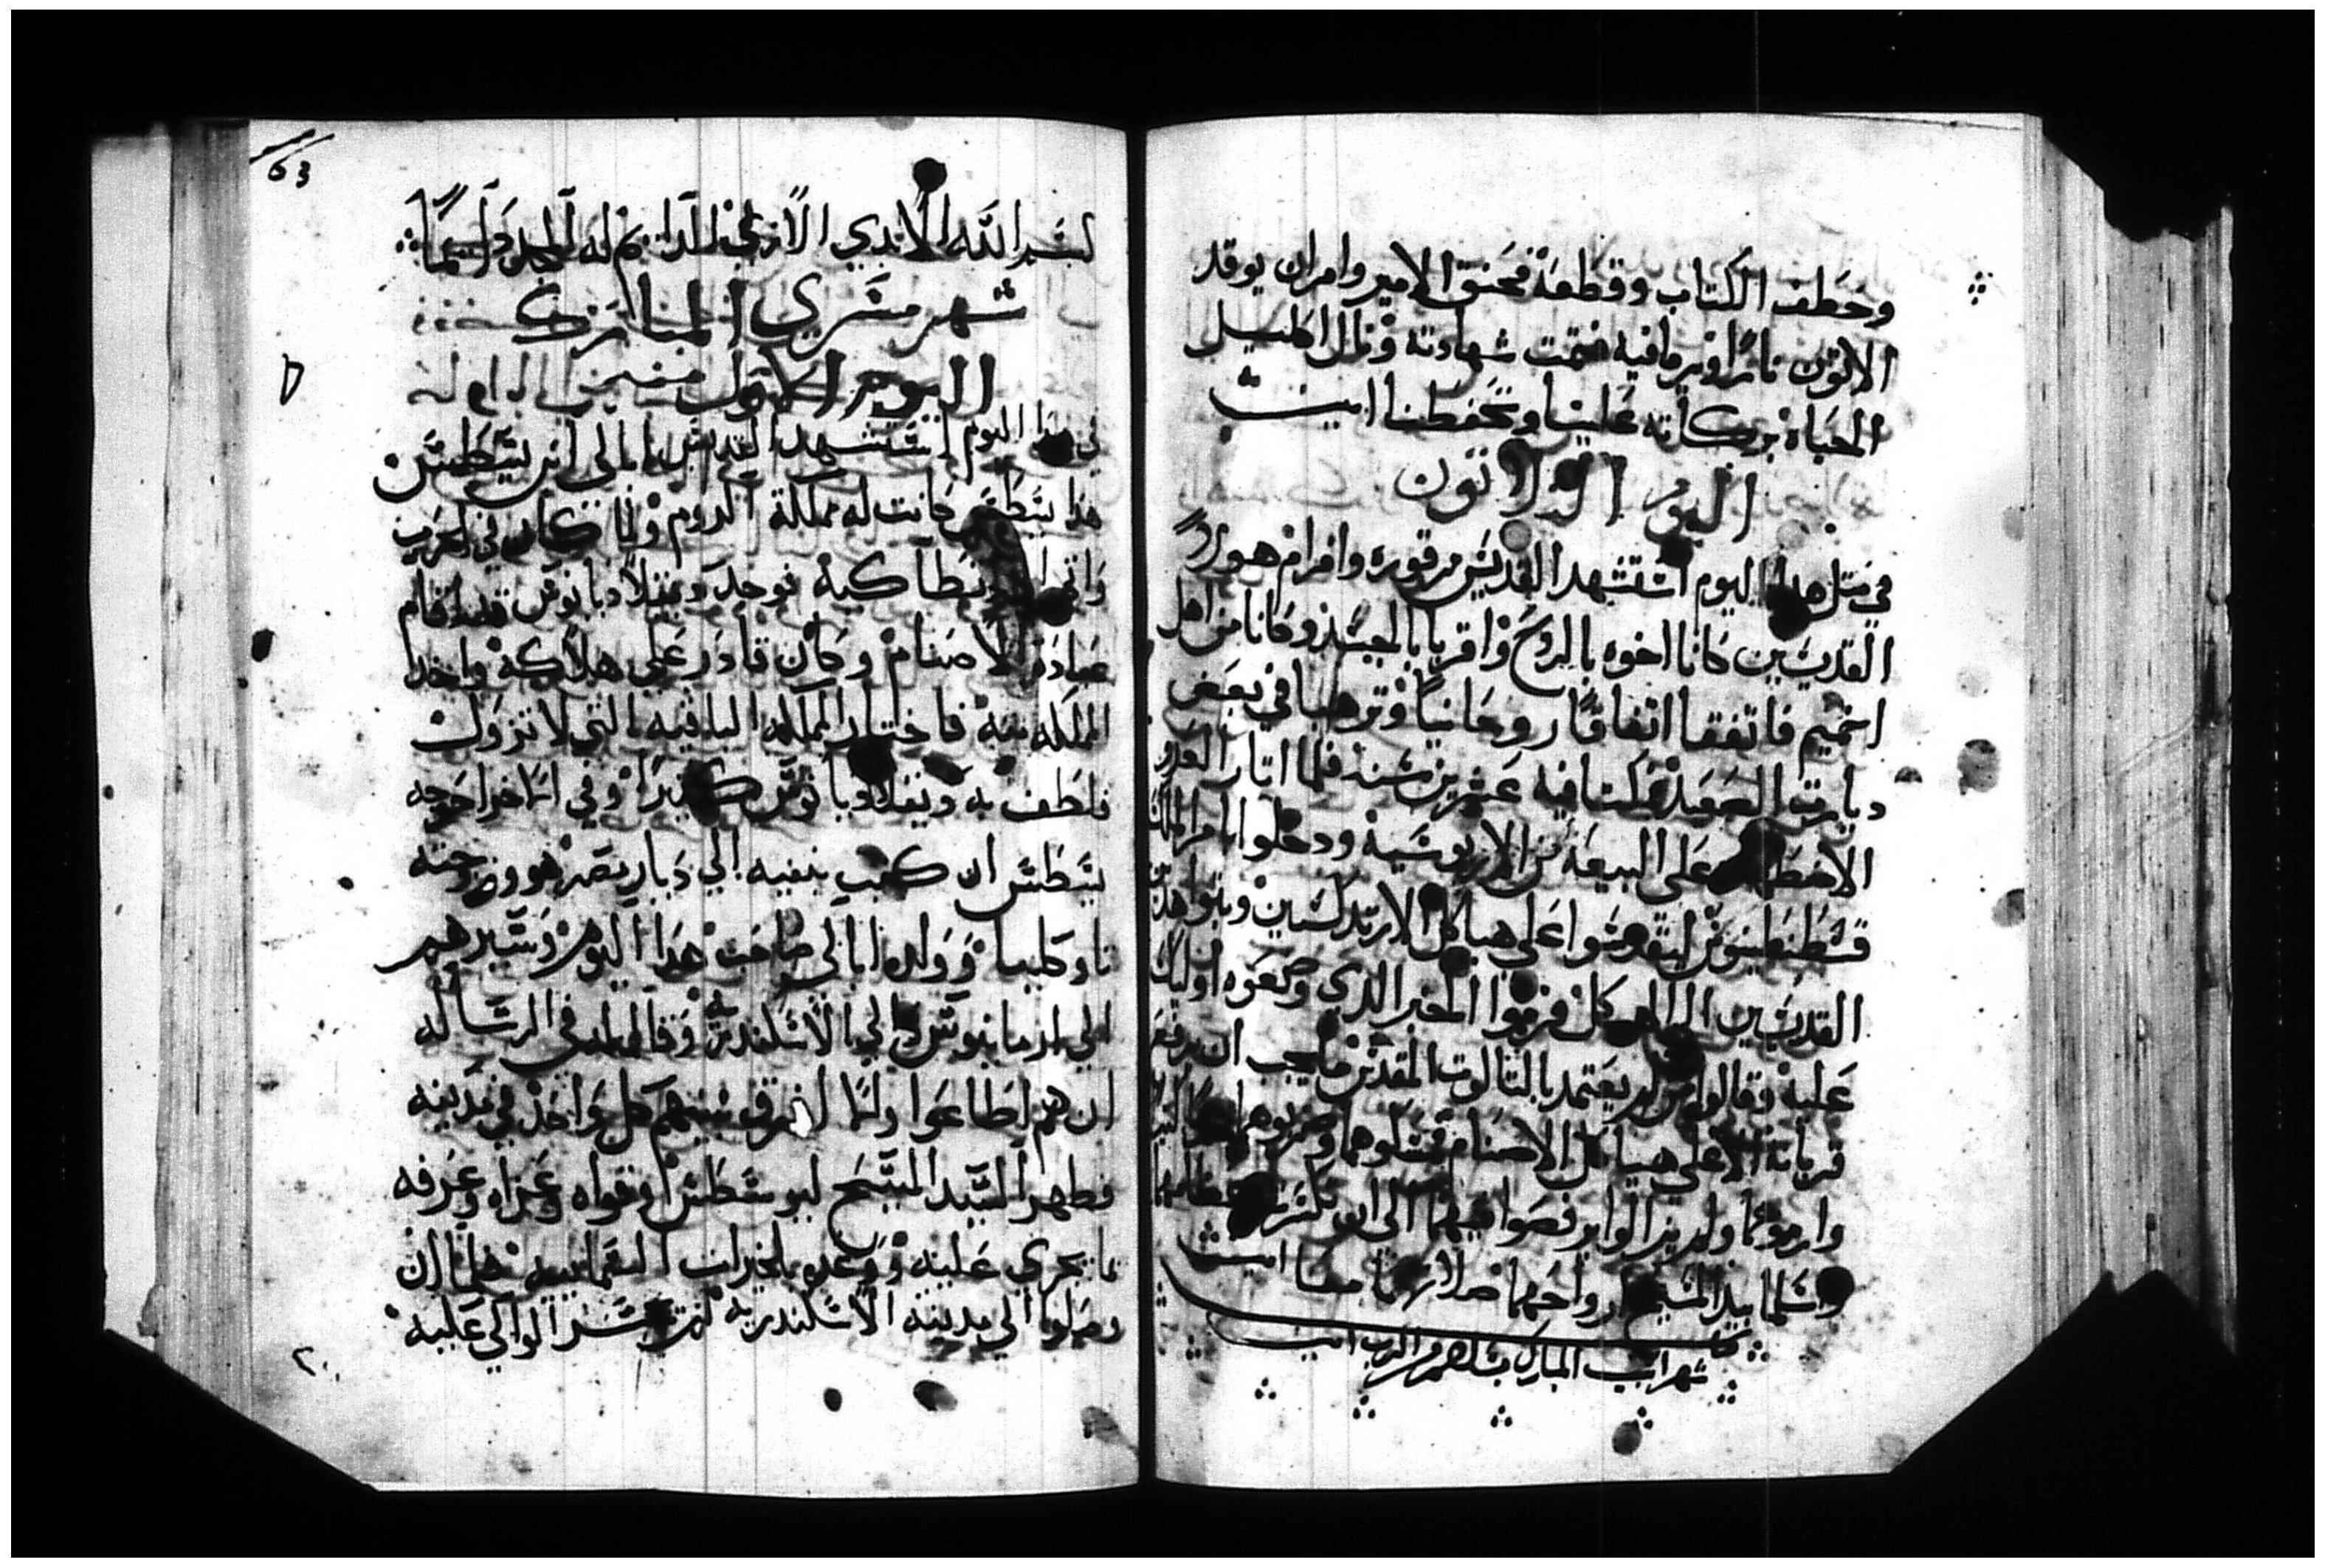 وخطف الكتاب وقطعه فحنق الامير وامر ان يوقد
الاتون نارا ويرما فيه فتمت شهادته ونال اكليل
الحياه بركاته علينا وتحفظنا امين
اليوم الثلاثون
في مثل هدا اليوم استشهد القديس مرقوره وافرام هولاء
القديسين كانا اخوه بالروح واقربا بالجسد وكانا من اهل
اخميم فاتفقا اتفاقا روحانيا وترهبا في بعض
ديارت الصعيد فمكتا فيه عشرين سنه فلما اتار العدو
الاضطهاد على البيعه من الاريوسيه ودخلوا بامر الملك
ليتقدموا على هياكل الارتدكسيين
القديسين الي الهيكل فرموا الخبز الدي وضعوه اوليك
عليه وقالوا من لم يعتمد بالتالوت المقدس ما يجب ان يرفع
قربانه الا على هياكل الاصنام فمسكوهما وضربوهما
وارموهما ولم يزالوا يرفصوا فيهما الى ان تكسرت عظامهما
واسلما بيد المسيح ارواحهما صلاتهما معنا امين
شهر ابيب المبارك بسلام من الرب امين
63
بسم الله الابدي الازلي الدايم له المجد دايما
شهر مسري المبارك
اليوم الاول من
في هدا اليوم استشهد القديس ابالي ابن يسطس
هدا يسطس كانت له مملكة الروم ولما كان في الحرب
واتى الى انطاكيه فوجد دقلاديانوس قد اقام
عبادة الاصنام وكان قادر على هلاكه واخد
المملكه منه فاختار المملكه الباقيه التي لا تزول
فلطف به دقلاديانوس كتيرا وفي اخراخرجه
يسطس ان كتب بنفيه الي ديار مصر هو وزوجته
تاوكليا وولده ابالي صاحب هدا اليوم وسيرهم
الي ارمانيوس والي الاسكندريه وقال له في الرساله
ان هم اطاعوا والا افرق بينهم كل واحد في مدينه
فظهر السيد المسيح ليوسطس وقواه وعزاه وعرفه
ما يجري عليه ووعده بالخيرات النعمانيه فلما ان
وصلوا الي مدينه الاسكندريه الوالي عليه